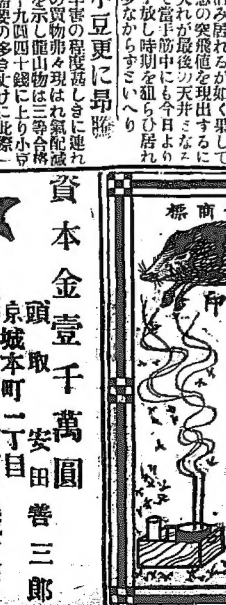 商標
印
み居れるが如く果して
の突飛値を現出するに
入れが最後の天井となる
當手筋中にも今日より
手放し時期を狙らひ居れ
多なからずといへり
小豆更に昂騰
干害の程度甚しきに連れ
の買物弗々現はれ氣配
を示し龍山物は三等合格
九圓四十錢に上り小
需要の多き丈けに此際一
資本金壹千萬圓
頭取 安田善三郎
京城本町二丁目